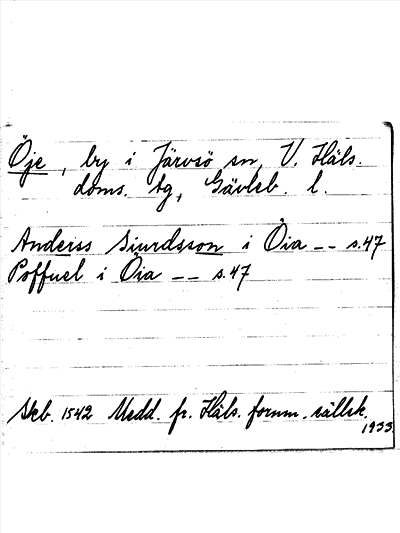 Öje, by i Järvsö sn, V. Häls.
doms. tg, Gävleb. l.
Anderss Siurdsson i Öia -- s.47
Poffuel i Öia -- s.47
Skb. 1542 Medd. fr. Häls. fornm. sällsk.
1933